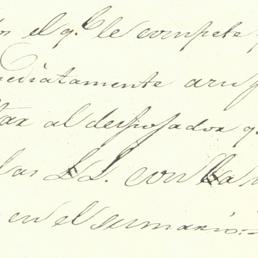 os el q.e le compete
mediatamente
tar al despojador q
las LL. con la
en el sumario.=